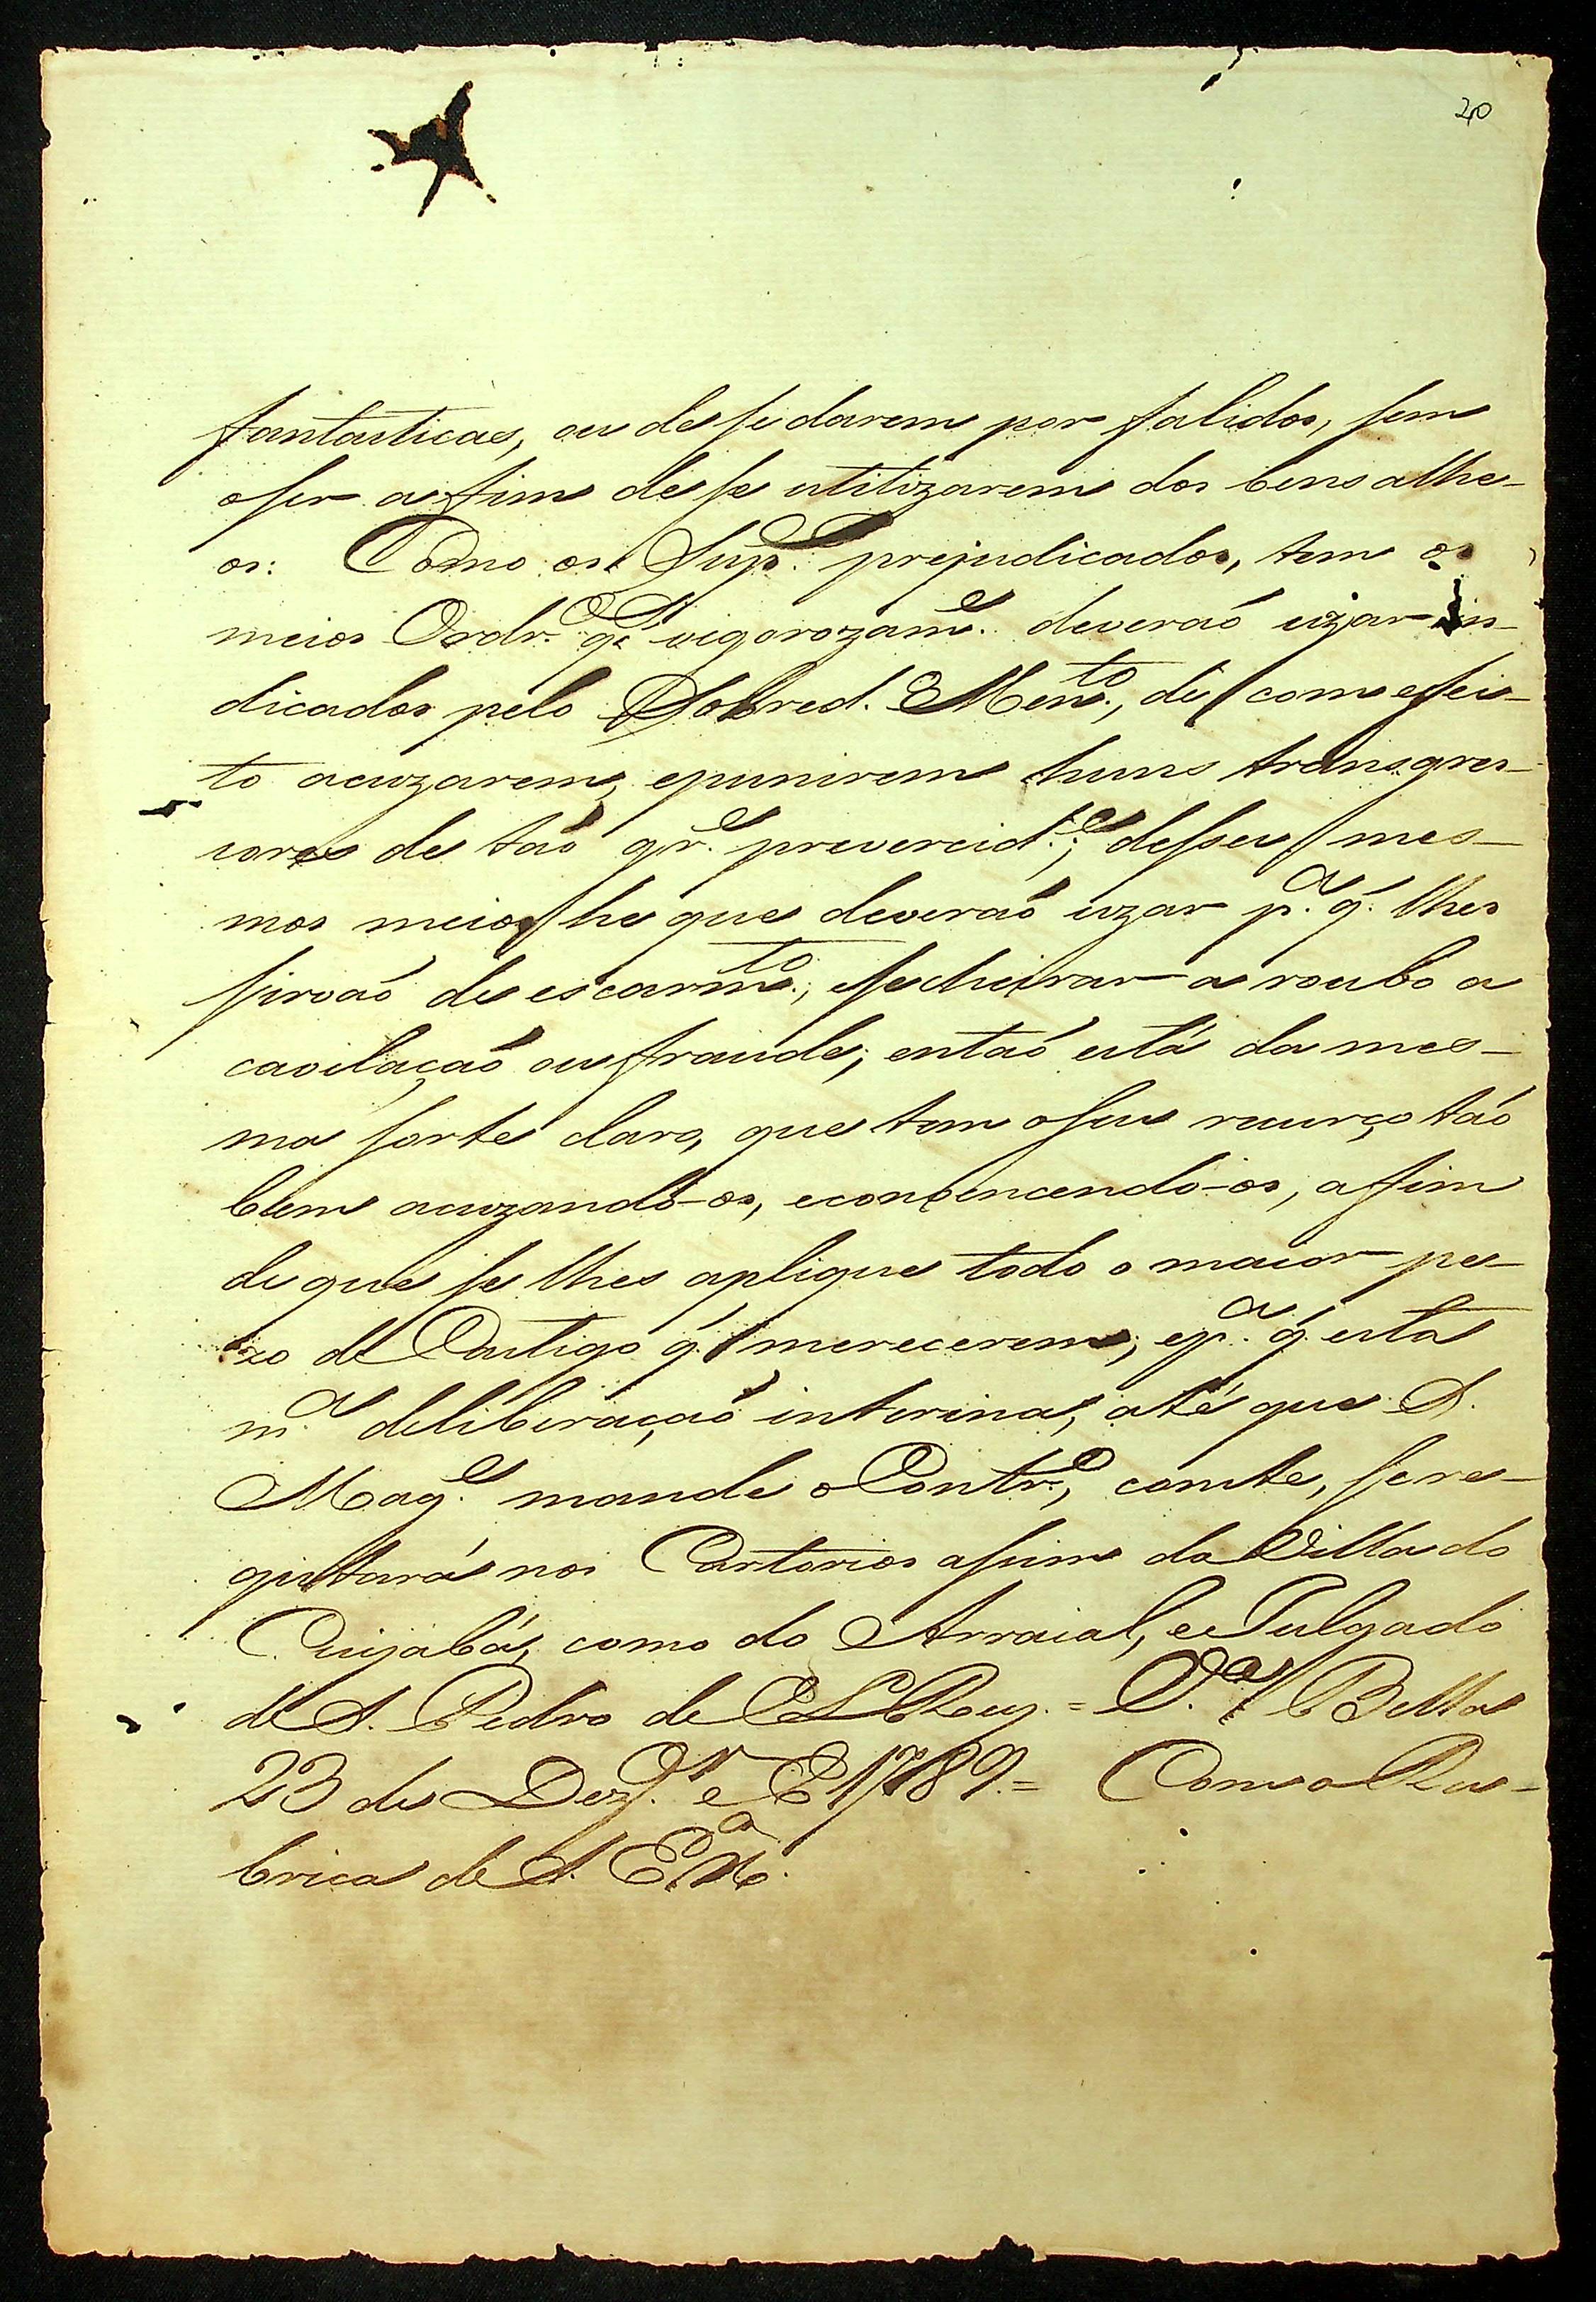 20
fantasticas, ou de se darem por falidos, sem
o ser a fim de se utilizarem dos bens alhe-
os: Como os Sup.es prejudicados, tem os
meios Ordr.os q' vigorozam.e deveraõ uzar in-
dicados pelo Sobred. Men.to, de com efei-
to acuzarem, e punirem huns transgres-
cores de taõ gr.e prevercid.e; desses mes-
mos meios he que deveraõ uzar p.a q' lhes
sirvaõ de escarm.to, e se cheirar a roubo a
cavilaçaõ ou fraude, entaõ está da mes-
ma sorte claro, que tem o seu recurço taõ
bem acuzando-os, e convencendo-os, a fim
de que se lhes aplique todo o maior pe-
zo de Castigo q' merecerem, e p.a q' esta
m.a deliberaçaõ interina, até que S.
Mag.e mande o Contr.o, conste, se re-
gistará nos Cartorios assim da Villa do
Cuyabá, como do Arraial, e Julgado
de S. Pedro de El Rey. = V.a Bella
23 de Dez.r e 1789. = Com a Ru-
brica de S. Ex.a